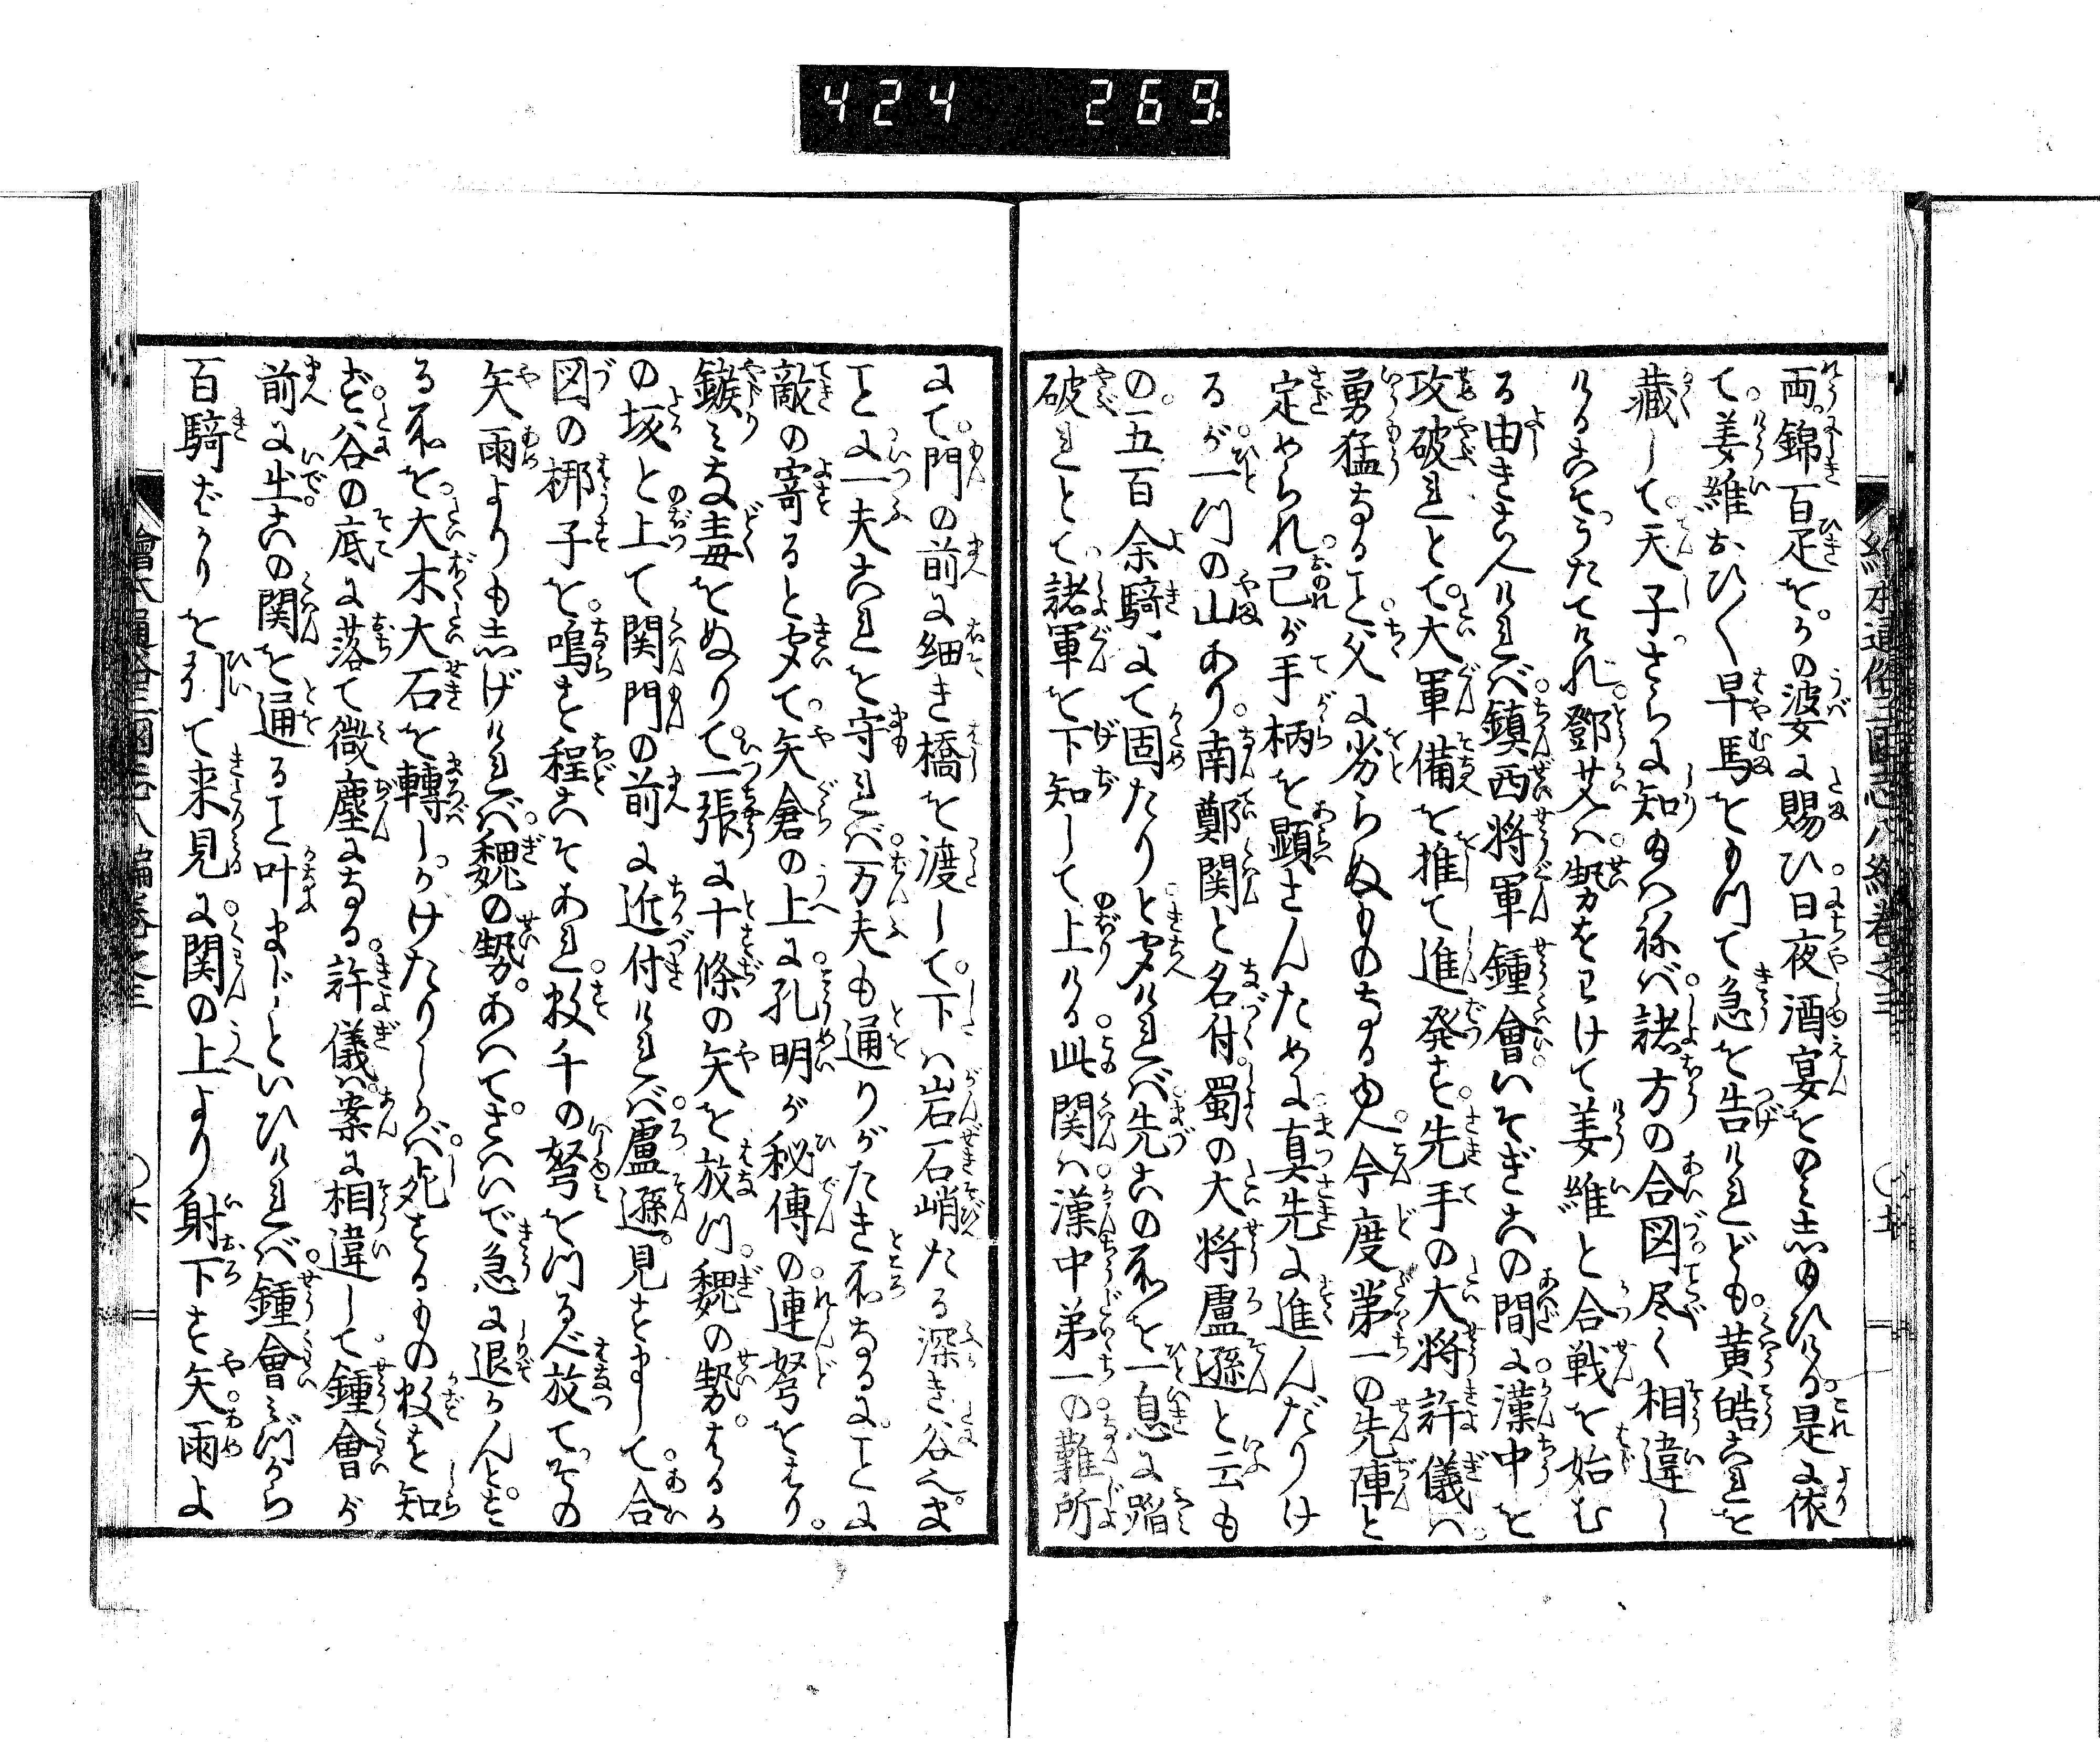 424 269.
絵本通俗三国志八編巻之三
両。錦一百疋を。かの婆に賜ひ日夜酒宴をのみ志給ひける。是に依
て。姜維おひ〳〵早馬をもつて急を告けれども。黄皓これを
蔵して。天子さらに知給はねば。諸方の合図尽く相違し
けるこそうたてけれ。鄧艾は。勢をわけて姜維と合戦を始む
る由きこへければ。鎮西将軍鍾會。いそぎこの間に。漢中を
攻破れとて。大軍備を推て進発す。先手の大将許儀は。
勇猛なること。父に劣らぬものなるゆへ。今度第一の先陣と
定められ。己が手柄を顕さんために。真先に進んだりけ
るが。一つの山あり。南鄭関と名付。蜀の大将盧遜と云も
の。五百余騎にて固たりと。聞ければ。先この所を一息に蹈
破れとて。諸軍を下知して上りける。此関は。漢中第一の難所
にて。門の前に細き橋を渡して。下は岩石峭たる深き谷也。ま
ことに一夫これを守れば。万夫も通りがたき所なるに。ことに
敵の寄ると聞て。矢倉の上に。孔明が秘傳の。連弩をはり。
鏃にな毒をぬりて。一張に十條の矢を放つ。魏の勢。はるか
の坂を上て関門の前に近付ければ。盧遜。見すまして。合
図の梆子を。鳴すと程こそあれ。数千の弩をつるべ放て。その
矢雨よりも志げければ。魏の勢。あへてさゝいで急に退かんとす
る所を。大木大石を轉しかけたりしかば。死するもの数を知
ず。谷の底に落て微塵になる。許儀。案に相違して。鍾會が
前に出。この関を通ること叶まじといひければ。鍾會みづから
百騎ばかりを引て来見に。関の上より射下す矢。雨よ